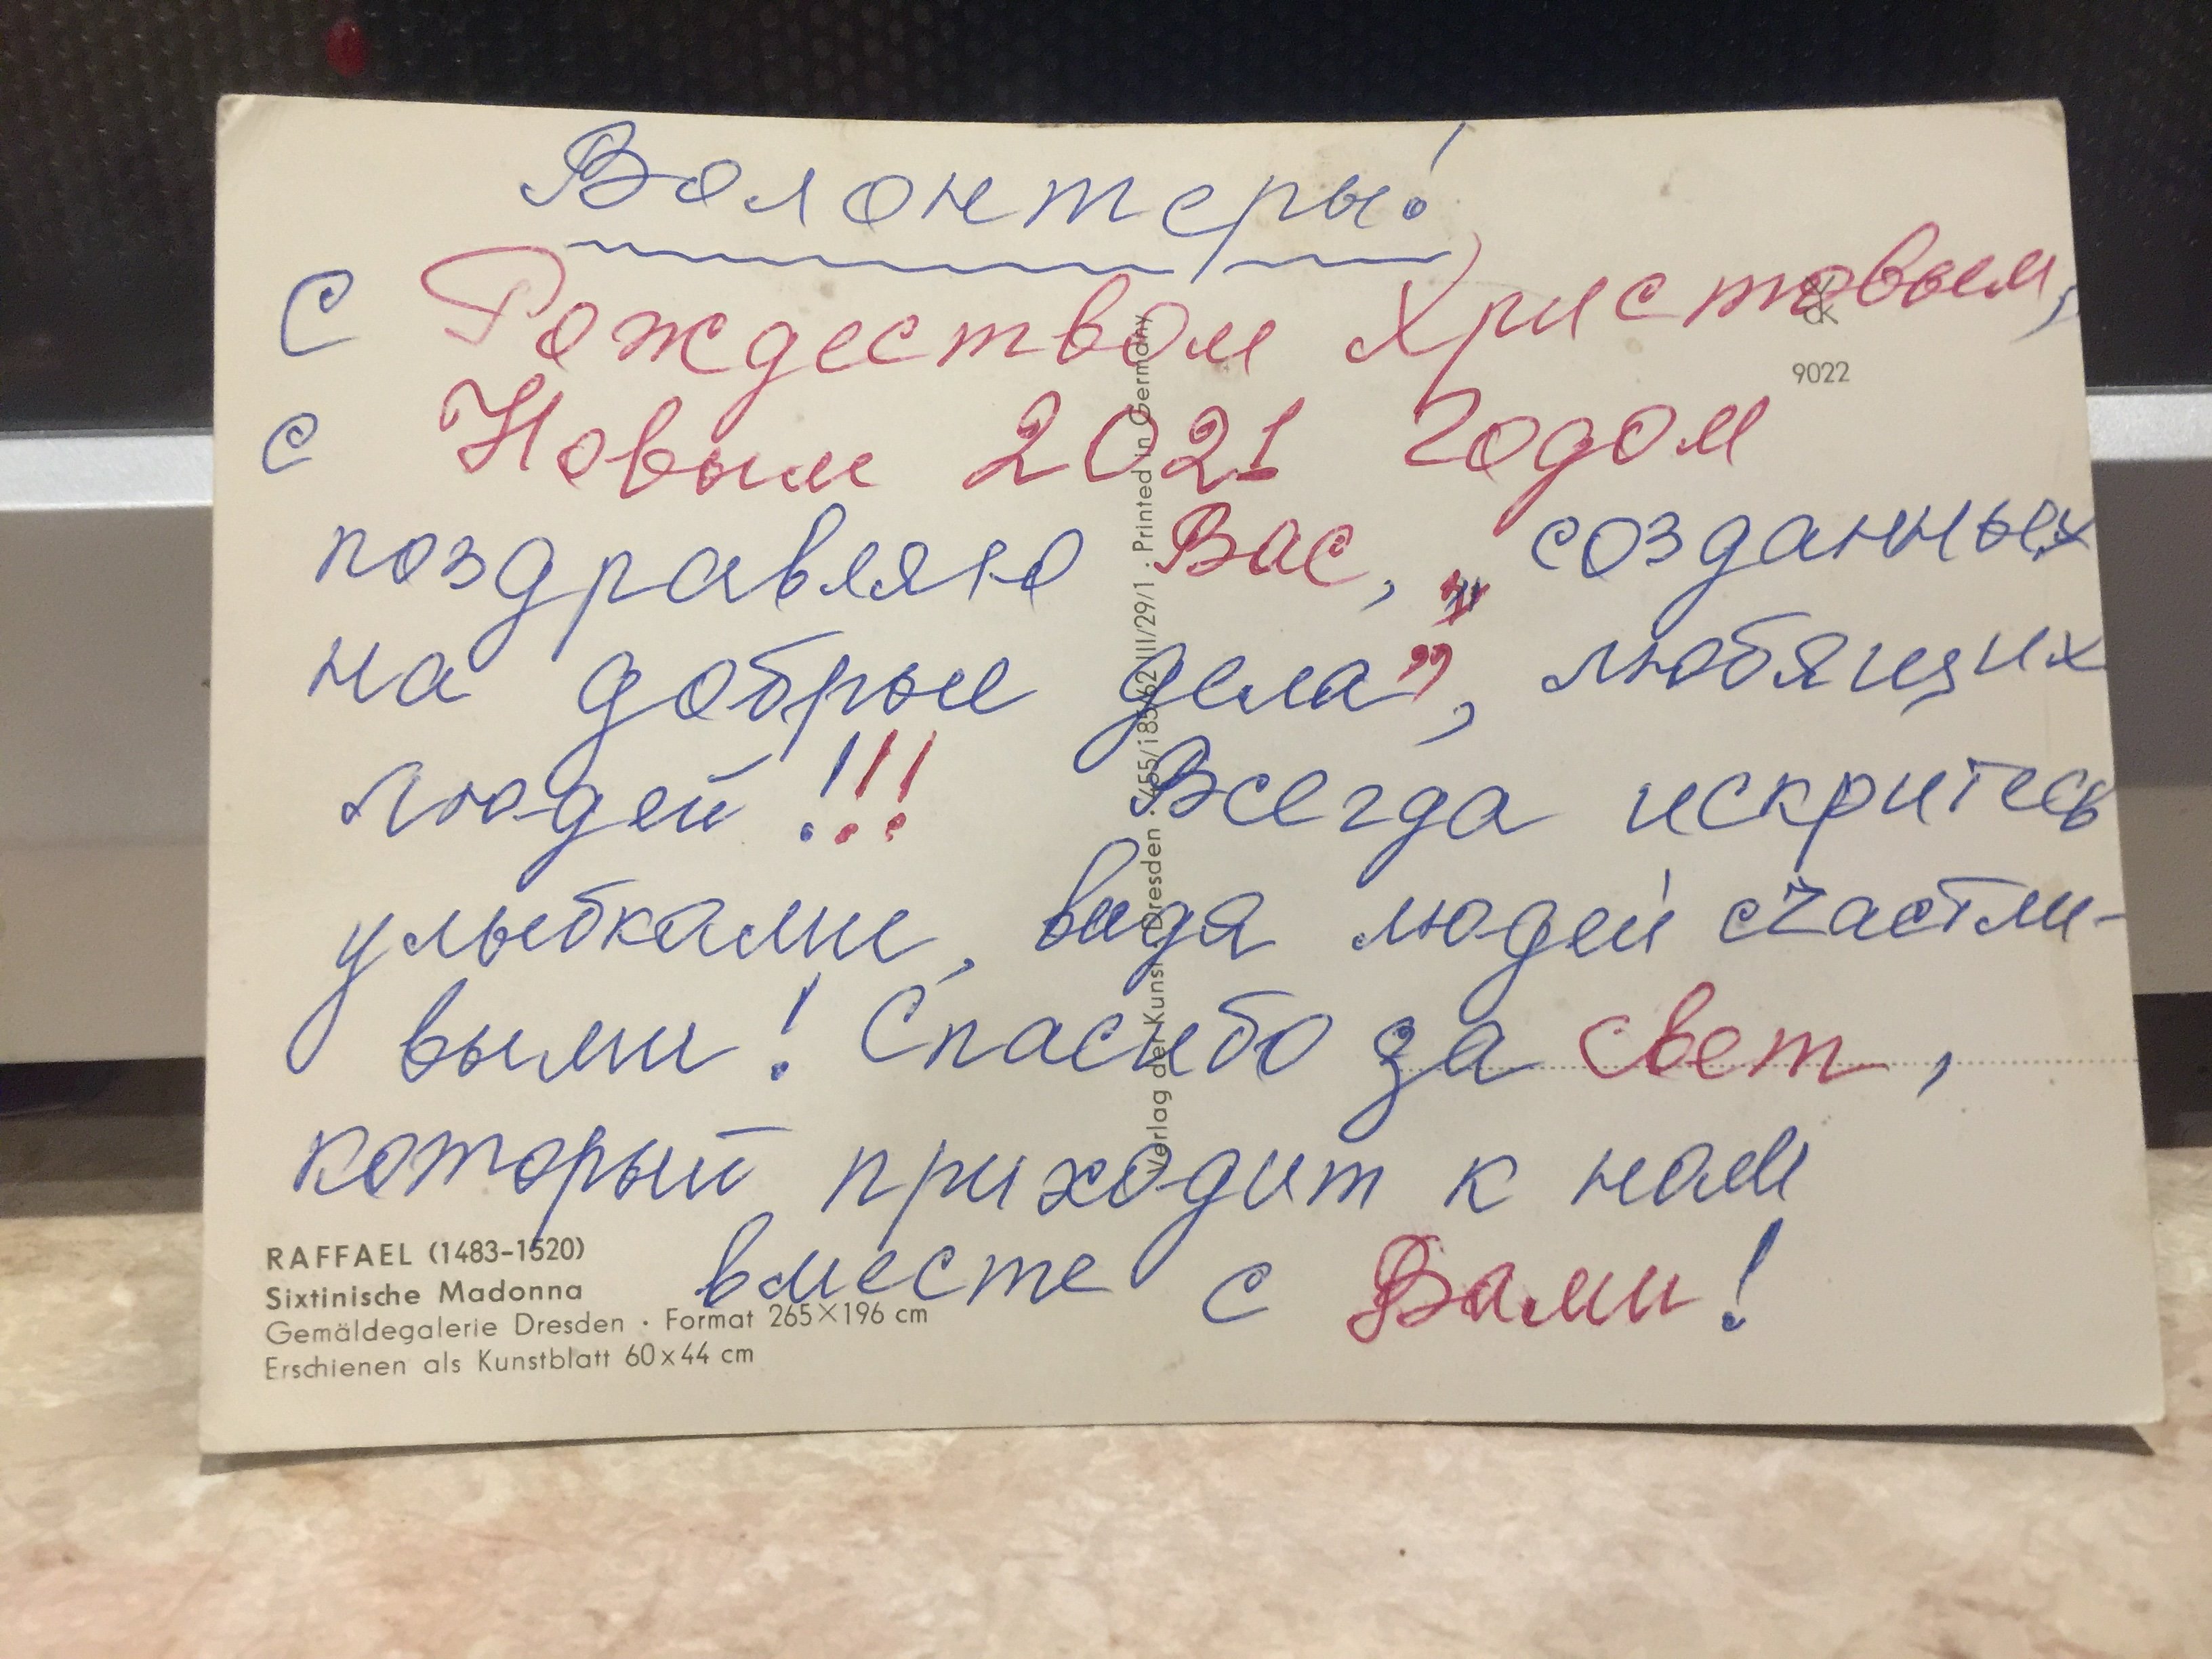 Волонтеры!
С Рождеством Христовым,
с Новым 2021 Годом
поздравляю Вас, „созданных
на добрые дела”, любящих
людей!!! Всегда искритесь
улыбками, видя людей счастли-
выми! Спасибо за свет,
который приходит к нам
вместе с Вами!
9022
Verlag der Kunst Dresden · 455/185/62 III/29/1 · Printed in Germany
RAFFAEL (1483–1520)
Sixtinische Madonna
Gemäldegalerie Dresden · Format 265×196 cm
Erschienen als Kunstblatt 60×44 cm